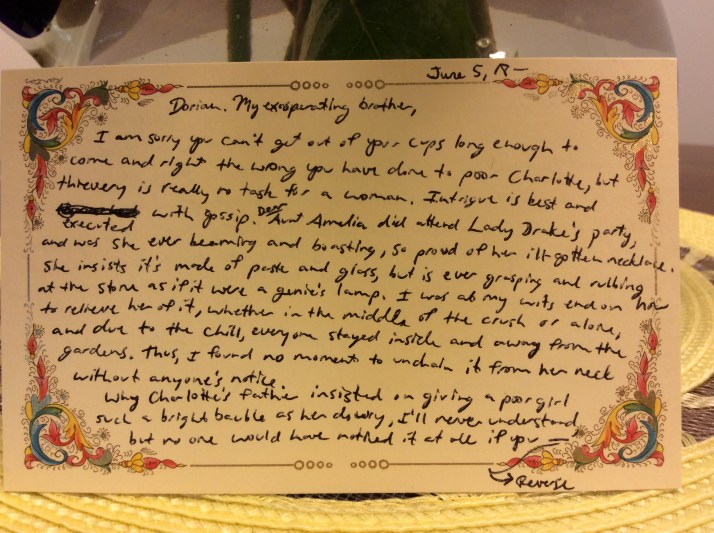 June 5, R—
Dorian. My exasperating brother,
I am sorry you can't get out of your cups long enough to
come and right the wrong you have done to poor Charlotte, but
thievery is really no task for a woman. Intrigue is best
executed with gossip. Dear Aunt Amelia did attend Lady Drake's party,
and was she ever beaming and boasting, so proud of her ill-gotten necklace.
She insists it's made of paste and glass, but is ever grasping and rubbing
at the stone as if it were a genie's lamp. I was at my wits end on how
to relieve her of it, whether in the middle of the crush or alone,
and due to the chill, everyone stayed inside and away from the
gardens. Thus, I found no moment to unchain it from her neck
without anyone's notice.
Why Charlotte's father insisted on giving a poor girl
such a bright bauble as her dowry, I'll never understand
but no one would have noticed it at all if you —
Reverse